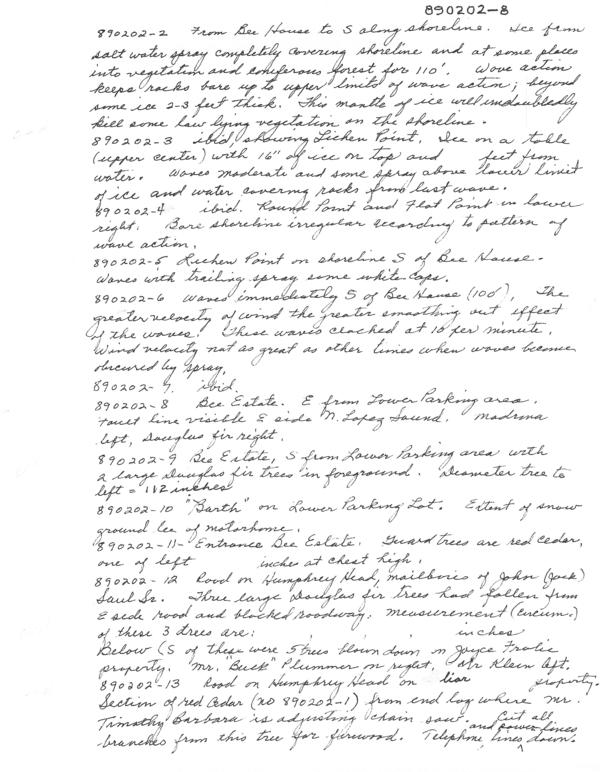 890202-8
890202-2 From Bee House to S along shoreline. Ice from
salt water spray completely covering shoreline and at some places
into vegetation and coniferous forest for 110'. Wave action
keeps rocks bare up to upper limits of wave action; beyond
some ice 2-3 feet thick. This mantle of ice will undoubtedly
kill some low lying vegetation on the shoreline.
890202-3 ibid, showing Lichen Point. Ice on a table
(upper center) with 16" of ice on top and feet from
water. Waves moderate and some spray above lower limit
of ice and water covering rocks from last wave.
890202-4 ibid. Round Point and Flat Point in lower
right. Bare shoreline irregular according to pattern of
wave action.
890202-5 Lichen Point on shoreline S of Bee House.
Waves with trailing spray some white caps.
890202-6 Waves immediately S of Bee House (100'). The
greater velocity of wind the greater smoothing out effect
of the waves. These waves clocked at 10 per minute.
Wind velocity not as great as other times when waves become
obscured by spray.
890202-7. ibid.
890202-8 Bee Estate. E from Lower Parking area.
Fault line visible E side N. Lopez Sound. Madrona
left, Douglas fir right.
890202-9 Bee Estate, S from Lower Parking area with
2 large Douglas fir trees in foreground. Diameter tree to
left = 112 inches
890202-10 "Barth" on Lower Parking Lot. Extent of snow
ground lee of motorhome.
890202-11- Entrance Bee Estate. Guard trees are red cedar,
one of left inches at chest high.
890202-12 Road on Humphrey Head, mailboxes of John (Jack)
Saul Sr. Three large Douglas fir trees had fallen from
E side road and blocked roadway. Measurement (circum.)
of these 3 trees are: inches
Below (S of these were 5 trees blown down on Joyce
property. Mr. "Buck" Plummer on right, Mr Klein left.
890202-13 Road on Humphrey Head on liar property.
Section of red Cedar (no 890202-1) from end log where Mr.
Timothy Barbara is adjusting chain saw. Cut all
branches from this tree for firewood. Telephone and power lines
lines down.